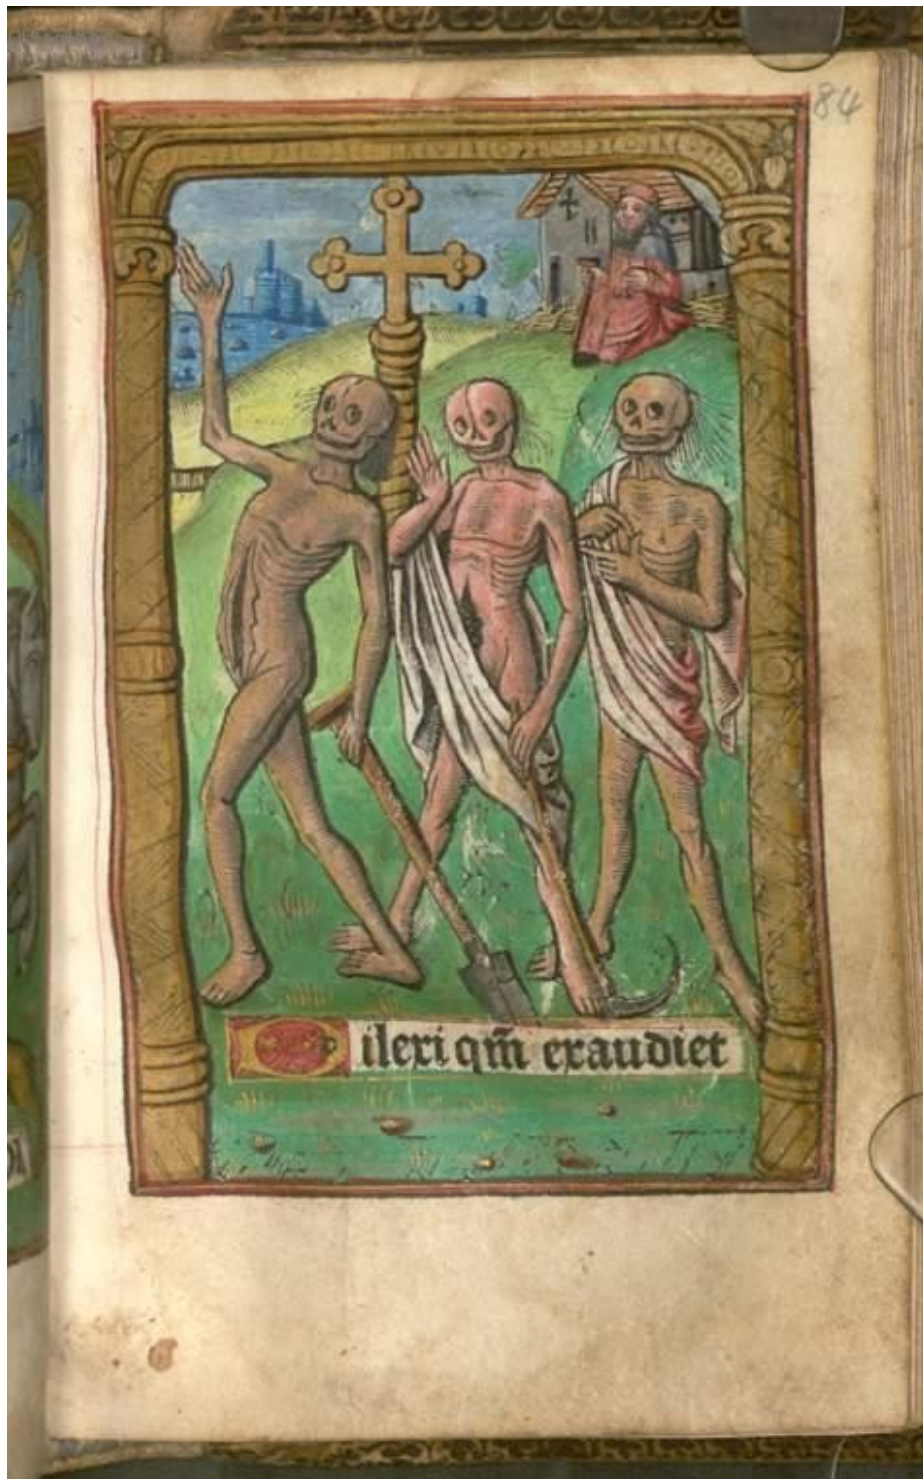 84
Dilexi qm̄ exaudiet